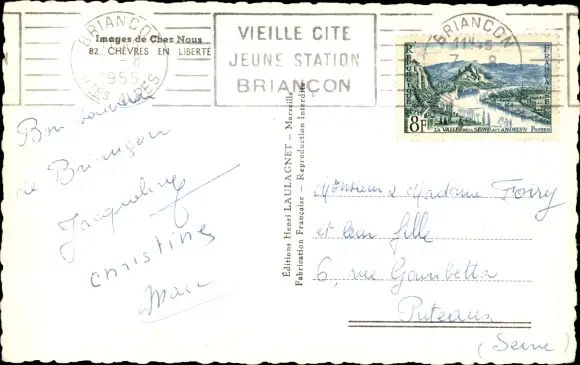 Images de Chez Nous
82 CHÈVRES EN LIBERTÉ
BRIANÇON
-8
1955
Htes ALPES
VIEILLE CITE
JEUNE STATION
BRIANÇON
BRIANÇON
7 -8
REPUBLIQUE
FRANÇAISE
8F
LA VALLEE DE LA SEINE AUX ANDELYS
POSTES
Bon souvenir
de Briançon
Jacqueline
Christine
Marc
Éditions Henri LAULAGNET - Marseille
Fabrication Française - Reproduction Interdite
Monsieur & Madame Foiry
et leur fille
6, rue Gambetta
Puteaux
(Seine)